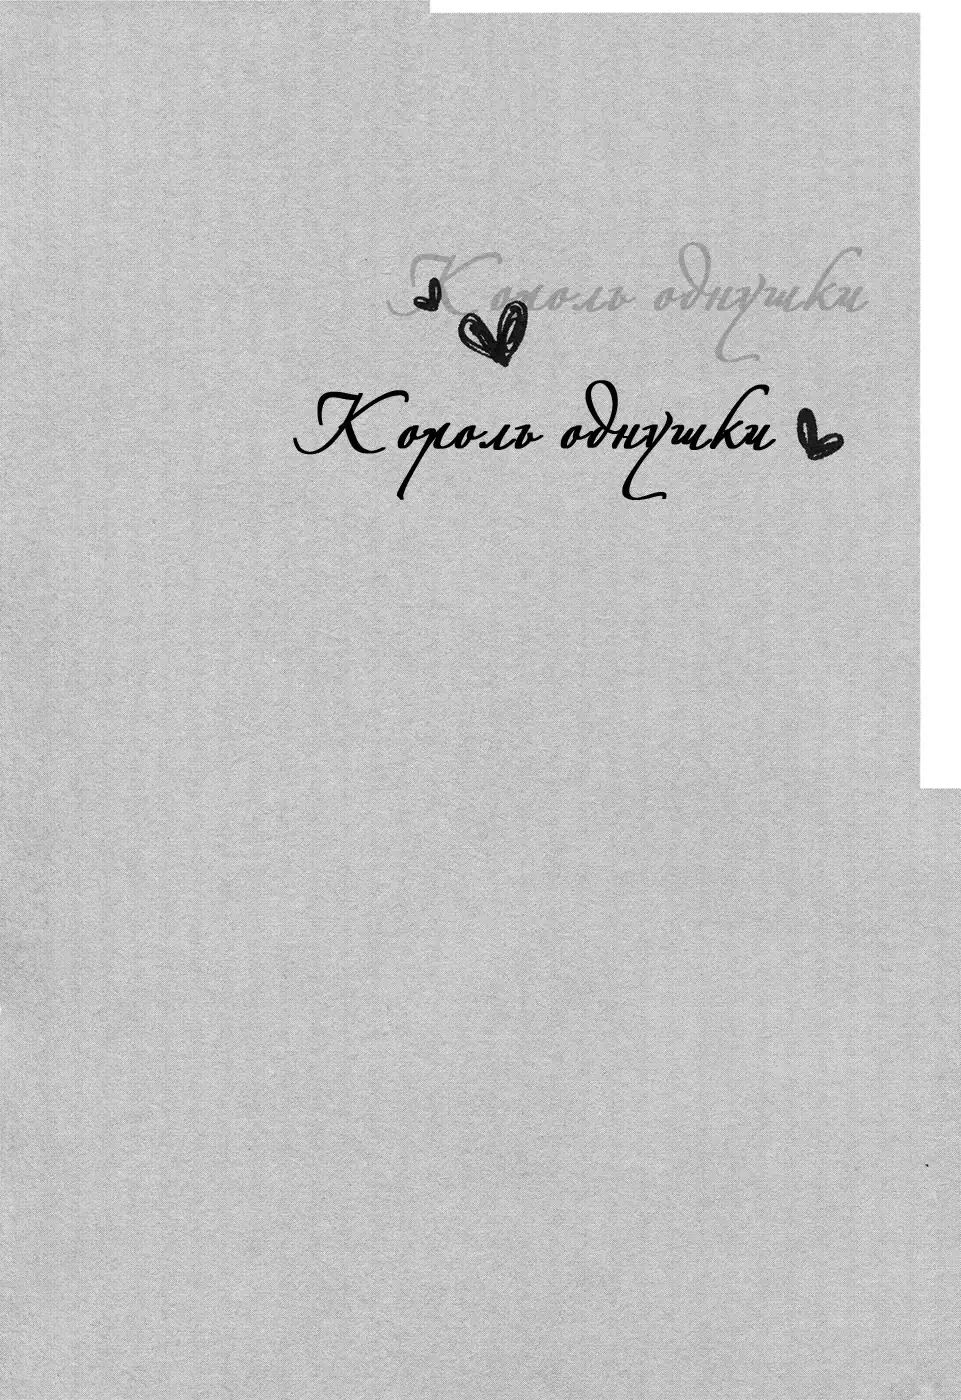 Король однушки
Король однушки